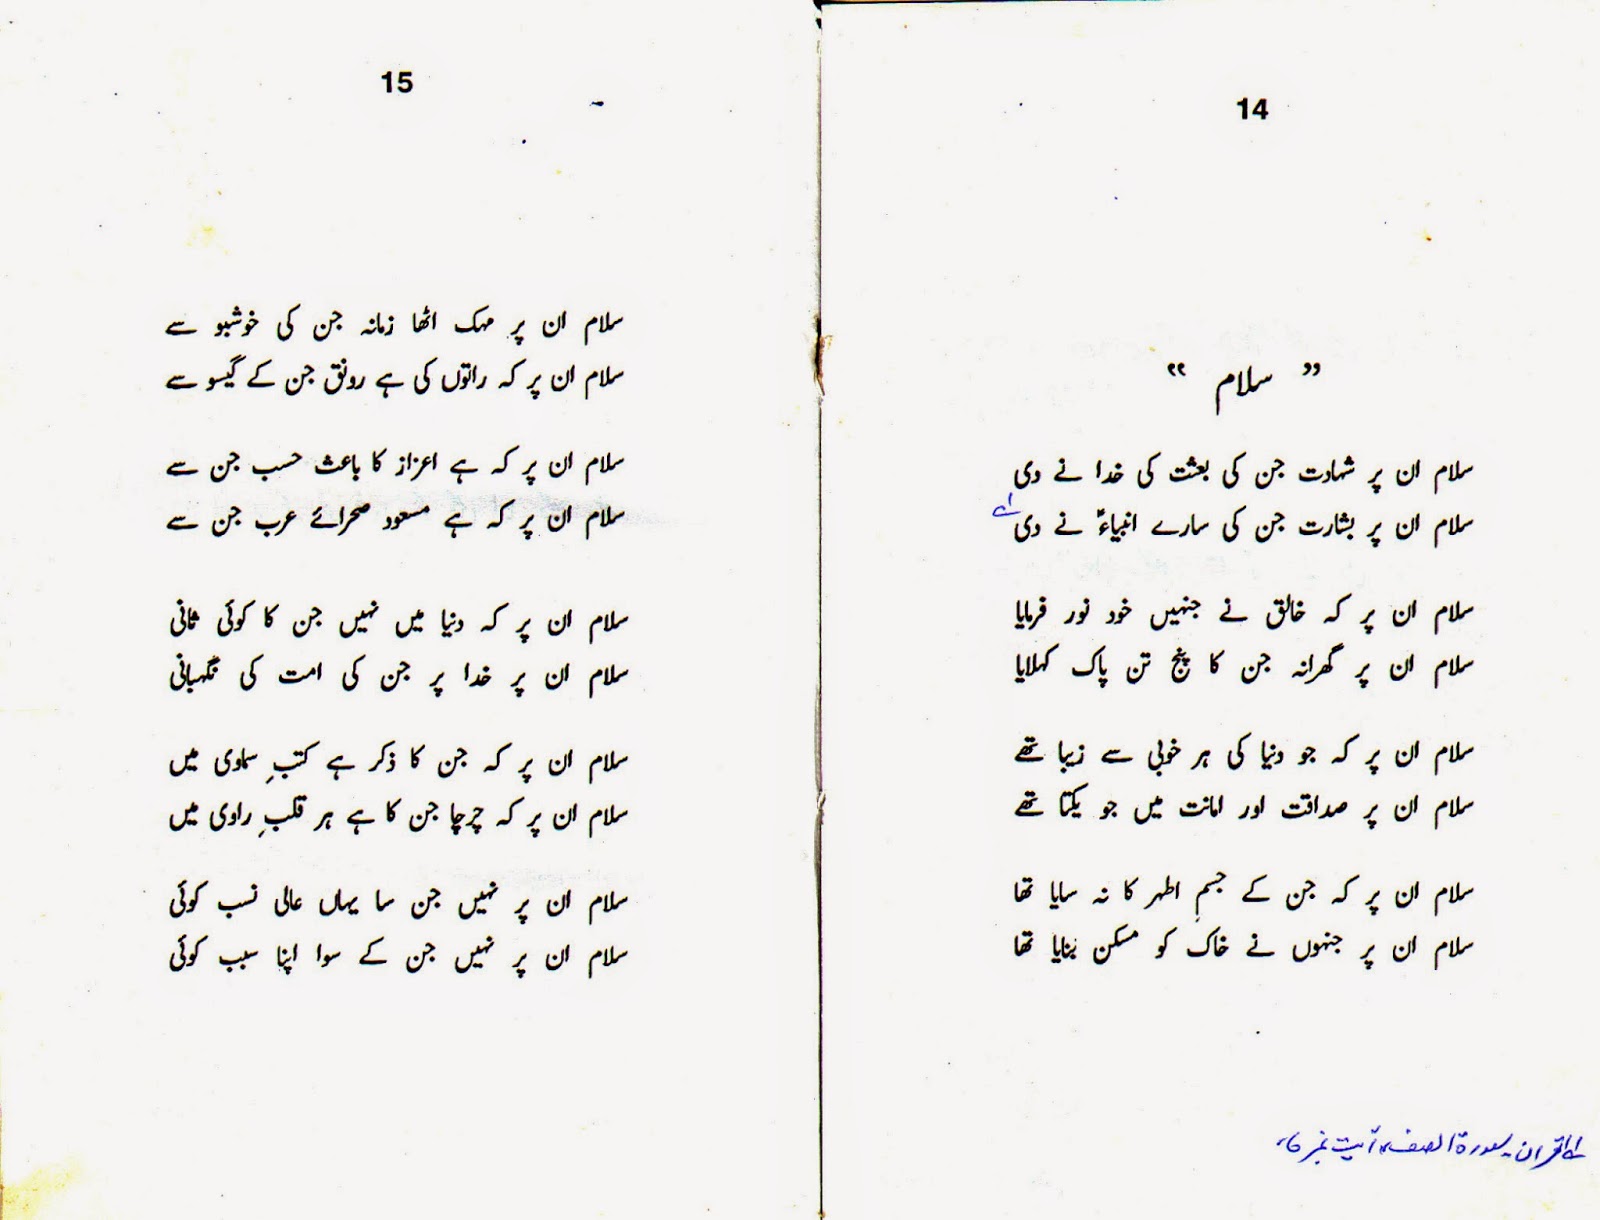 14
" سلام "
سلام ان پر شہادت جن کی بعثت کی خدا نے دی
سلام ان پر بشارت جن کی سارے انبیاءؑ نے دی ۱؎
سلام ان پر کہ خالق نے جنہیں خود نور فرمایا
سلام ان پر گھرانہ جن کا پنج تن پاک کہلایا
سلام ان پر کہ جو دنیا کی ہر خوبی سے زیبا تھے
سلام ان پر صداقت اور امانت میں جو یکتا تھے
سلام ان پر کہ جن کے جسمِ اطہر کا نہ سایا تھا
سلام ان پر جنہوں نے خاک کو مسکن بنایا تھا
۱؎ القرآن۔ سورۃ الصف، آیت نمبر ۶،
15
سلام ان پر مہک اٹھا زمانہ جن کی خوشبو سے
سلام ان پر کہ راتوں کی ہے رونق جن کے گیسو سے
سلام ان پر کہ ہے اعزاز کا باعث حسب جن سے
سلام ان پر کہ ہے مسعود صحرائے عرب جن سے
سلام ان پر کہ دنیا میں نہیں جن کا کوئی ثانی
سلام ان پر خدا پر جن کی امت کی نگہبانی
سلام ان پر کہ جن کا ذکر ہے کتبِ سماوی میں
سلام ان پر کہ چرچا جن کا ہے ہر قلبِ راوی میں
سلام ان پر نہیں جن سا یہاں عالی نسب کوئی
سلام ان پر نہیں جن کے سوا اپنا سبب کوئی